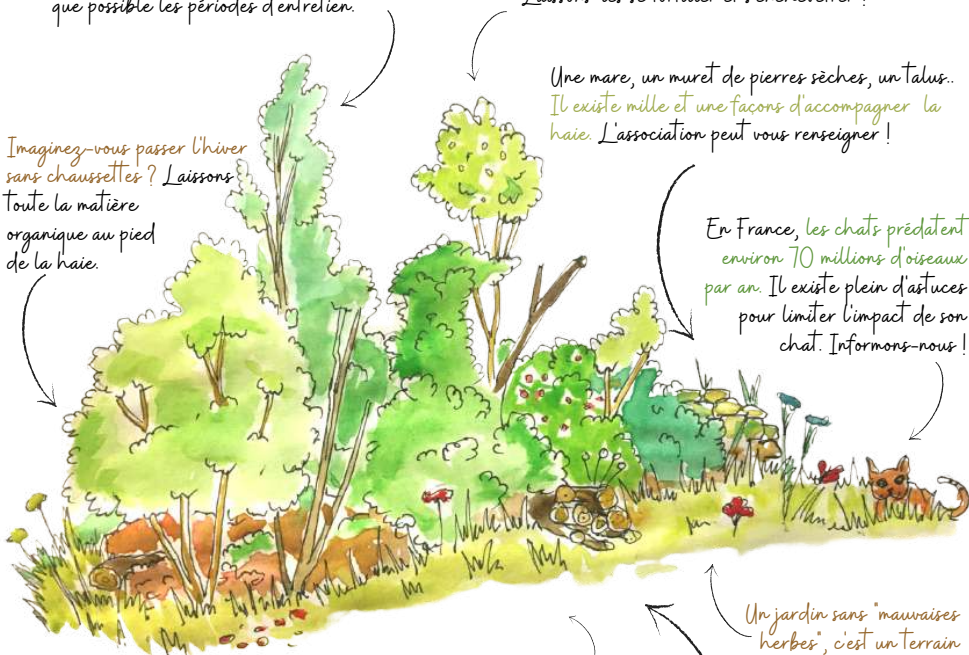 que possible les périodes d'entretien.
Laissons-les se faufiler et s'enchevêtrer !
Une mare, un muret de pierres sèches, un talus..
Il existe mille et une façons d'accompagner la
haie. L'association peut vous renseigner !
Imaginez-vous passer l'hiver
sans chaussettes ? Laissons
toute la matière
organique au pied
de la haie.
En France, les chats prédatent
environ 70 millions d'oiseaux
par an. Il existe plein d'astuces
pour limiter l'impact de son
chat. Informons-nous !
Un jardin sans "mauvaises
herbes", c'est un terrain